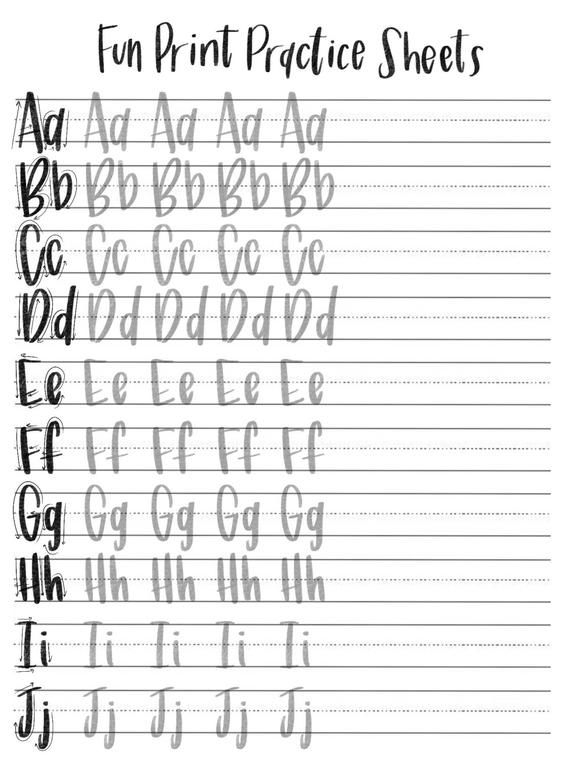 Fun Print Practice Sheets
Aa Aa Aa Aa Aa
Bb Bb Bb Bb Bb
Cc Cc Cc Cc Cc
Dd Dd Dd Dd Dd
Ee Ee Ee Ee Ee
Ff Ff Ff Ff Ff
Gg Gg Gg Gg Gg
Hh Hh Hh Hh Hh
Ii Ii Ii Ii Ii
Jj Jj Jj Jj Jj